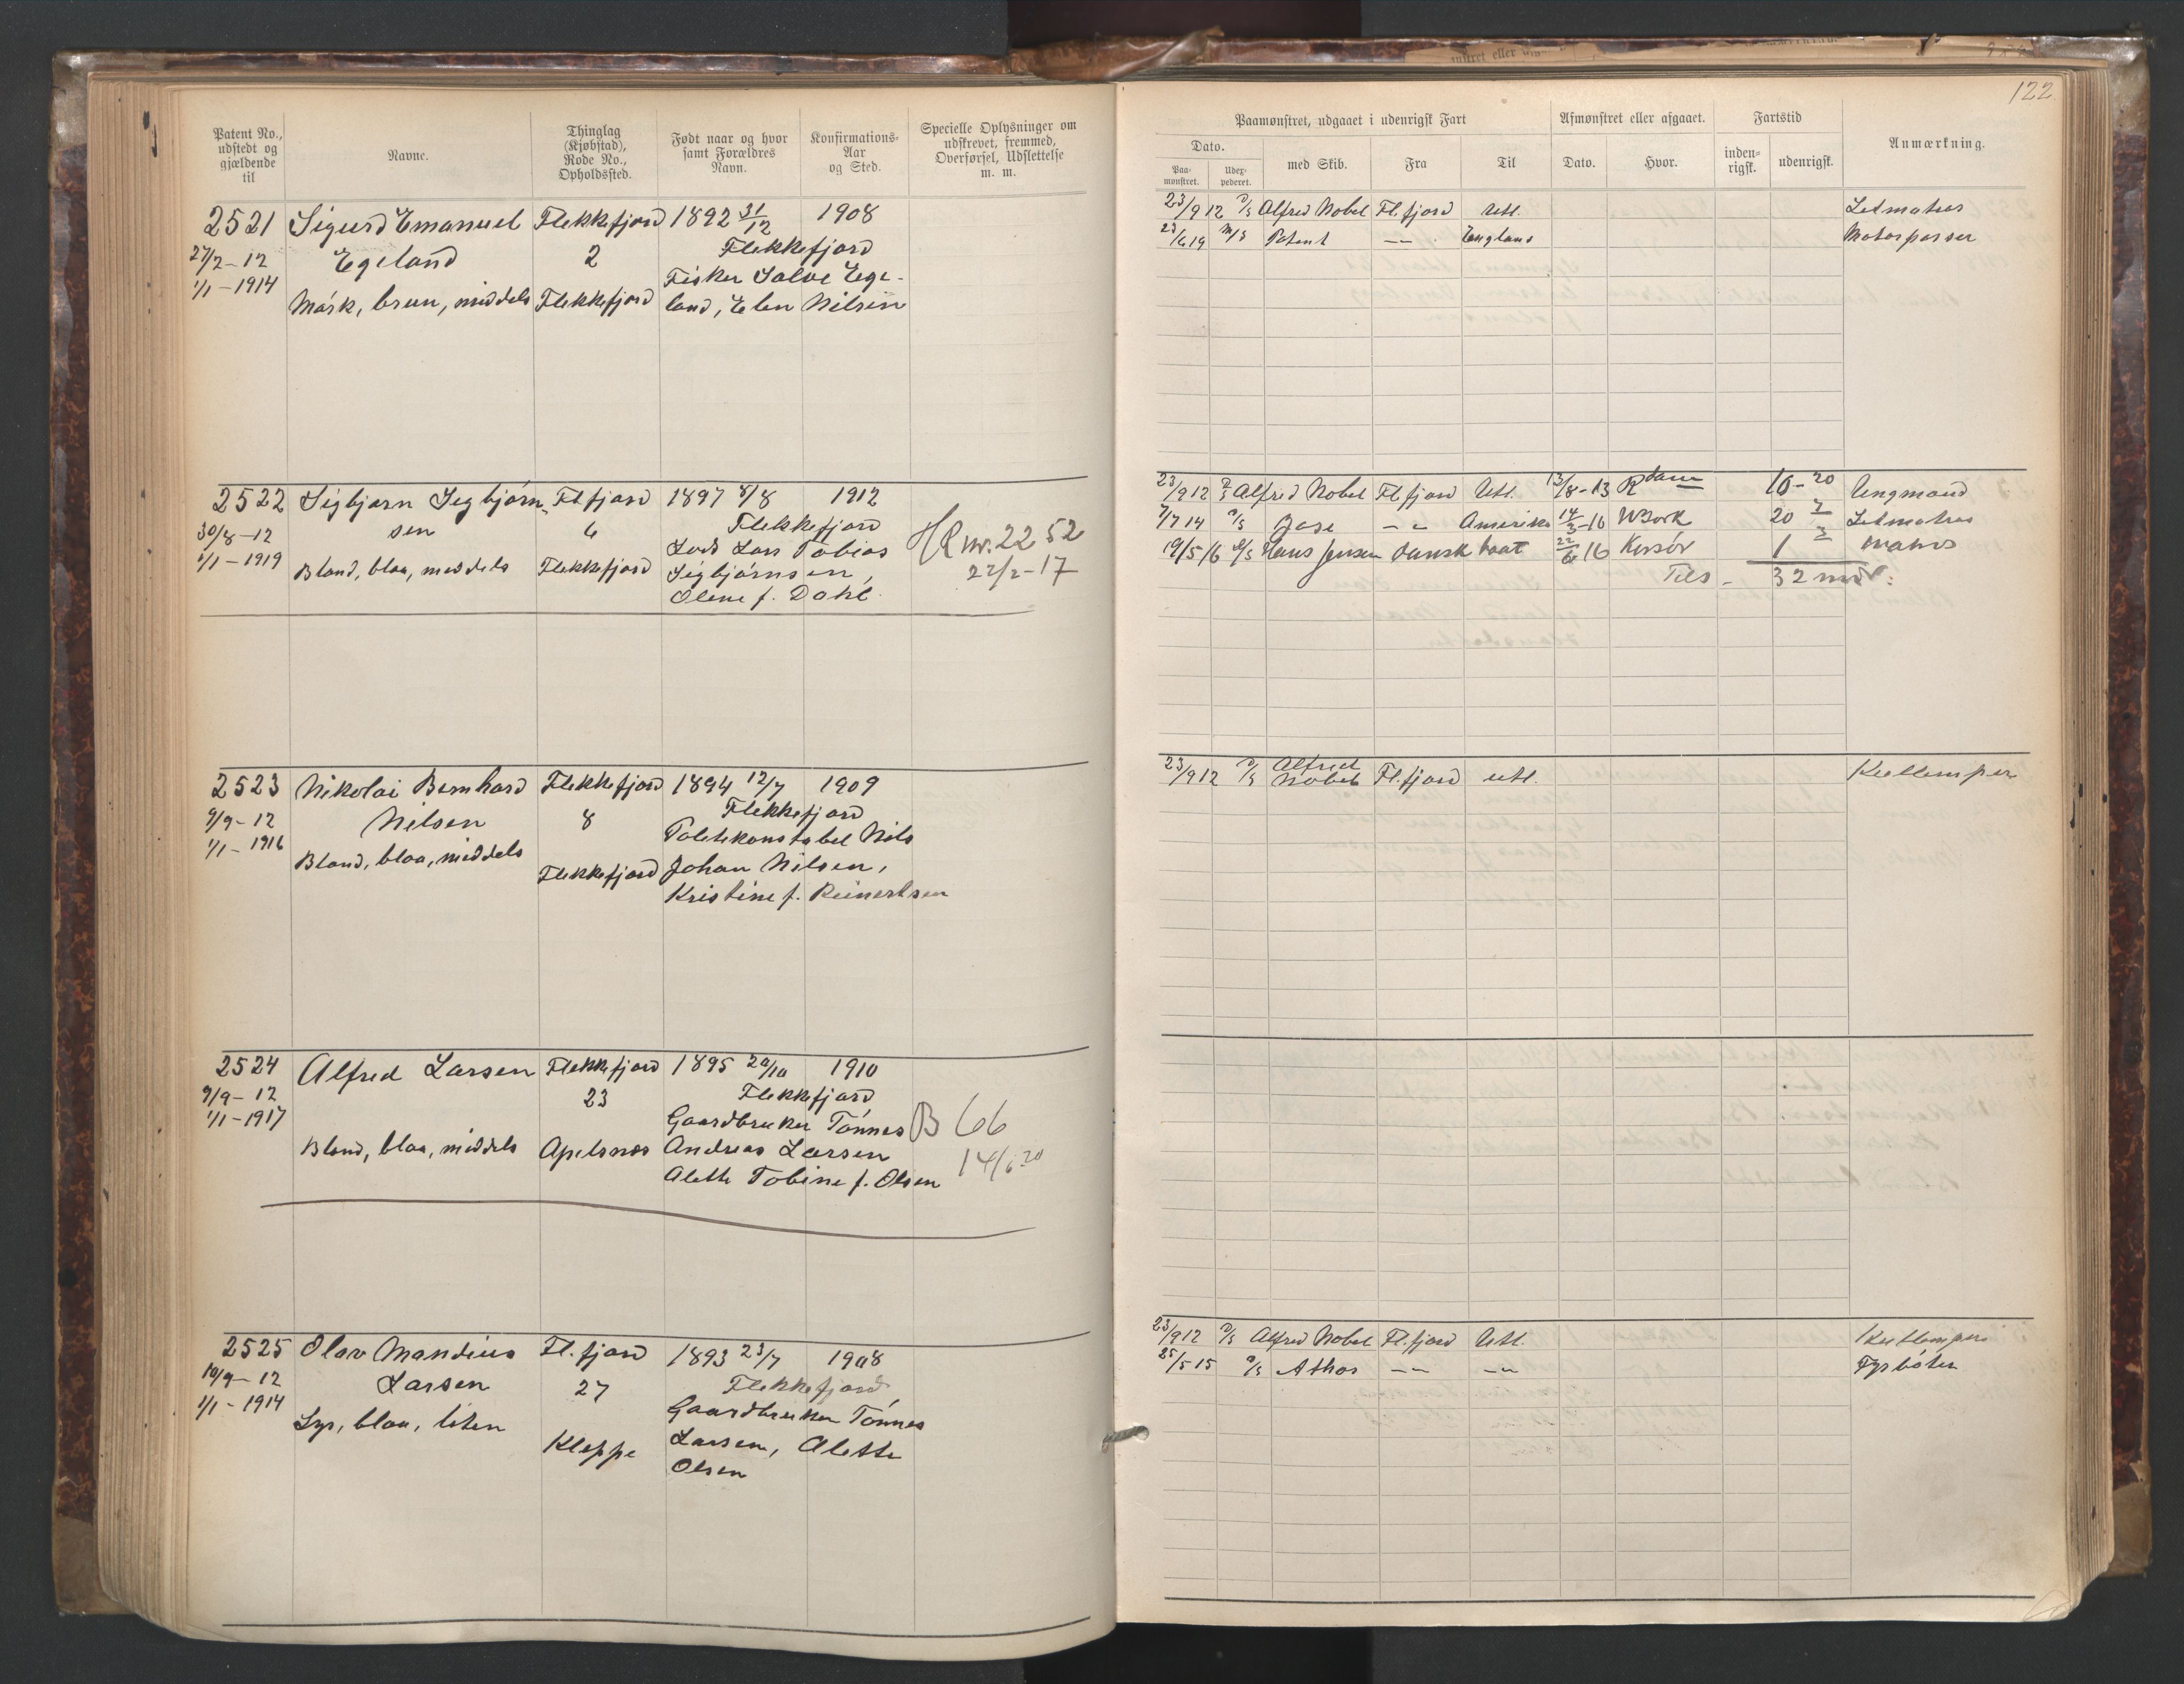 122
Patent No., udstedt og gjældende til
Navne.
Thinglag (Kjøbstad), Rode No., Opholdssted.
Født naar og hvor samt Forældres Navn.
Konfirmations-Aar og Sted.
Specielle Oplysninger om udskrevet, fremmed, Overførsel, Udslettelse m. m.
Paamønstret, udgaaet i udenrigsk Fart
Afmønstret eller afgaaet.
Fartstid
Anmærkning.
Dato.
Paa-mønstret.
Udex-pederet.
med Skib.
Fra
Til
Dato.
Hvor.
inden-rigsk.
udenrigsk.
2521 Sigurd Emanuel Flekkefjord 1892 31/12 1908
27/2-12 Egeland 2 Flekkefjord
1/1-1914 Mørk, brun, middels Flekkefjord Fisker Salve Ege-
land, Elen Nilsen
23/9 12 D/S Alfred Nobel Fl.fjord Utl. Letmatros
23/6 19 M/S Patent -"- England Motorpasser
2522 Sigbjørn Sigbjørn- Fl.fjord 1897 8/8 1912
30/8-12 sen 6 Flekkefjord
1/1-1919 Blond, blaa, middels Flekkefjord Lods Lars Tobias
Sigbjørnsen,
Oline f. Dahl
HR nr. 2252
22/2-17
23/9 12 D/S Alfred Nobel Fl.fjord Utl. 13/8-13 Rdam 10-20 Ungmand
7/7 14 D/S Base -"- Amerika 14/3-16 NYork 20 7 Letmatros
19/5 16 D/S Hans Jensen dansk baat 22/6 16 Korsør 1 3 Matros
Tils- 32 mdr.
2523 Nikolai Bernhard Flekkefjord 1894 12/7 1909
9/9-12 Nilsen 8 Flekkefjord
1/1-1916 Blond, blaa, middels Flekkefjord Politikonstabel Nils
Johan Nilsen,
Kristine f. Reinertsen
23/9 12 D/S Alfred Nobel Fl.fjord utl. Kullemper
2524 Alfred Larsen Flekkefjord 1895 20/10 1910
9/9-12 23 Flekkefjord
1/1-1917 Gaardbruker Tønnes
Blond, blaa, middels Apelsnes Andreas Larsen
Alette Tobine f. Olsen
B 66
14/6 20
2525 Olav Mandius Fl.fjord 1893 23/7 1908
10/9-12 Larsen 27 Flekkefjord
1/1-1914 Gaardbruker Tønnes
Lys, blaa, liten Kleppe Larsen, Alette
Olsen
23/9 12 D/S Alfred Nobel Fl.fjord Utl. Kullemper
25/5 15 D/S Athos -"- -"- Fyrbøter